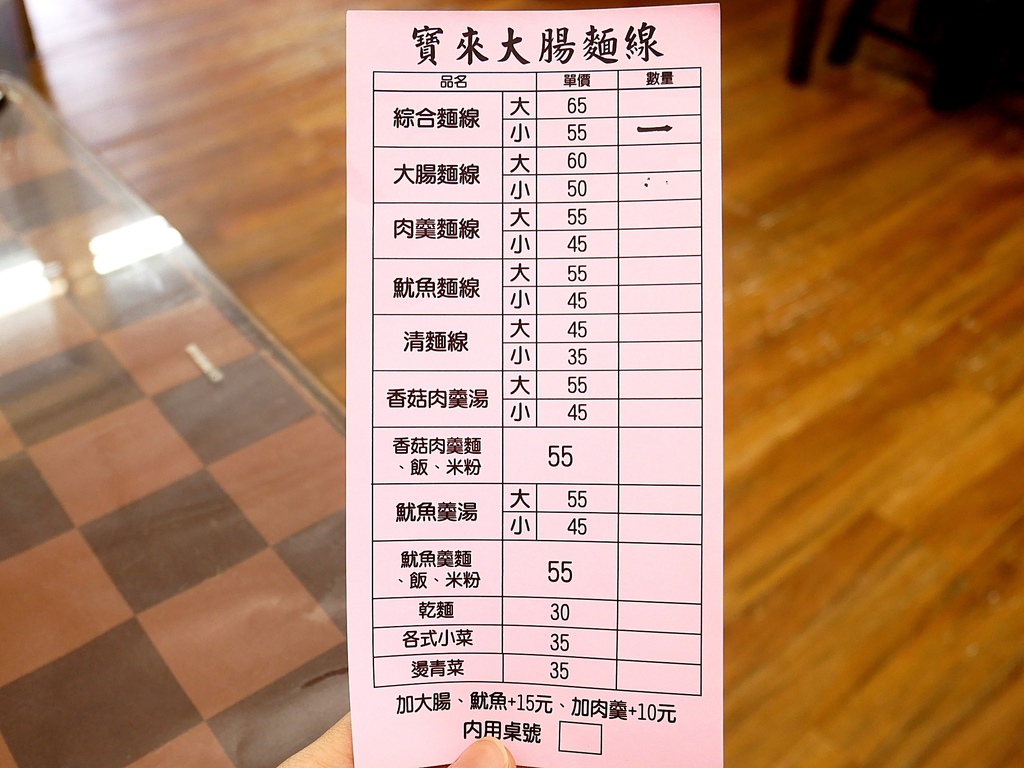 寶來大腸麵線
品名 單價 數量
綜合麵線 大 65
小 55 一
大腸麵線 大 60
小 50
肉羹麵線 大 55
小 45
魷魚麵線 大 55
小 45
清麵線 大 45
小 35
香菇肉羹湯 大 55
小 45
香菇肉羹麵
、飯、米粉 55
魷魚羹湯 大 55
小 45
魷魚羹麵
、飯、米粉 55
乾麵 30
各式小菜 35
燙青菜 35
加大腸、魷魚+15元、加肉羹+10元
內用桌號